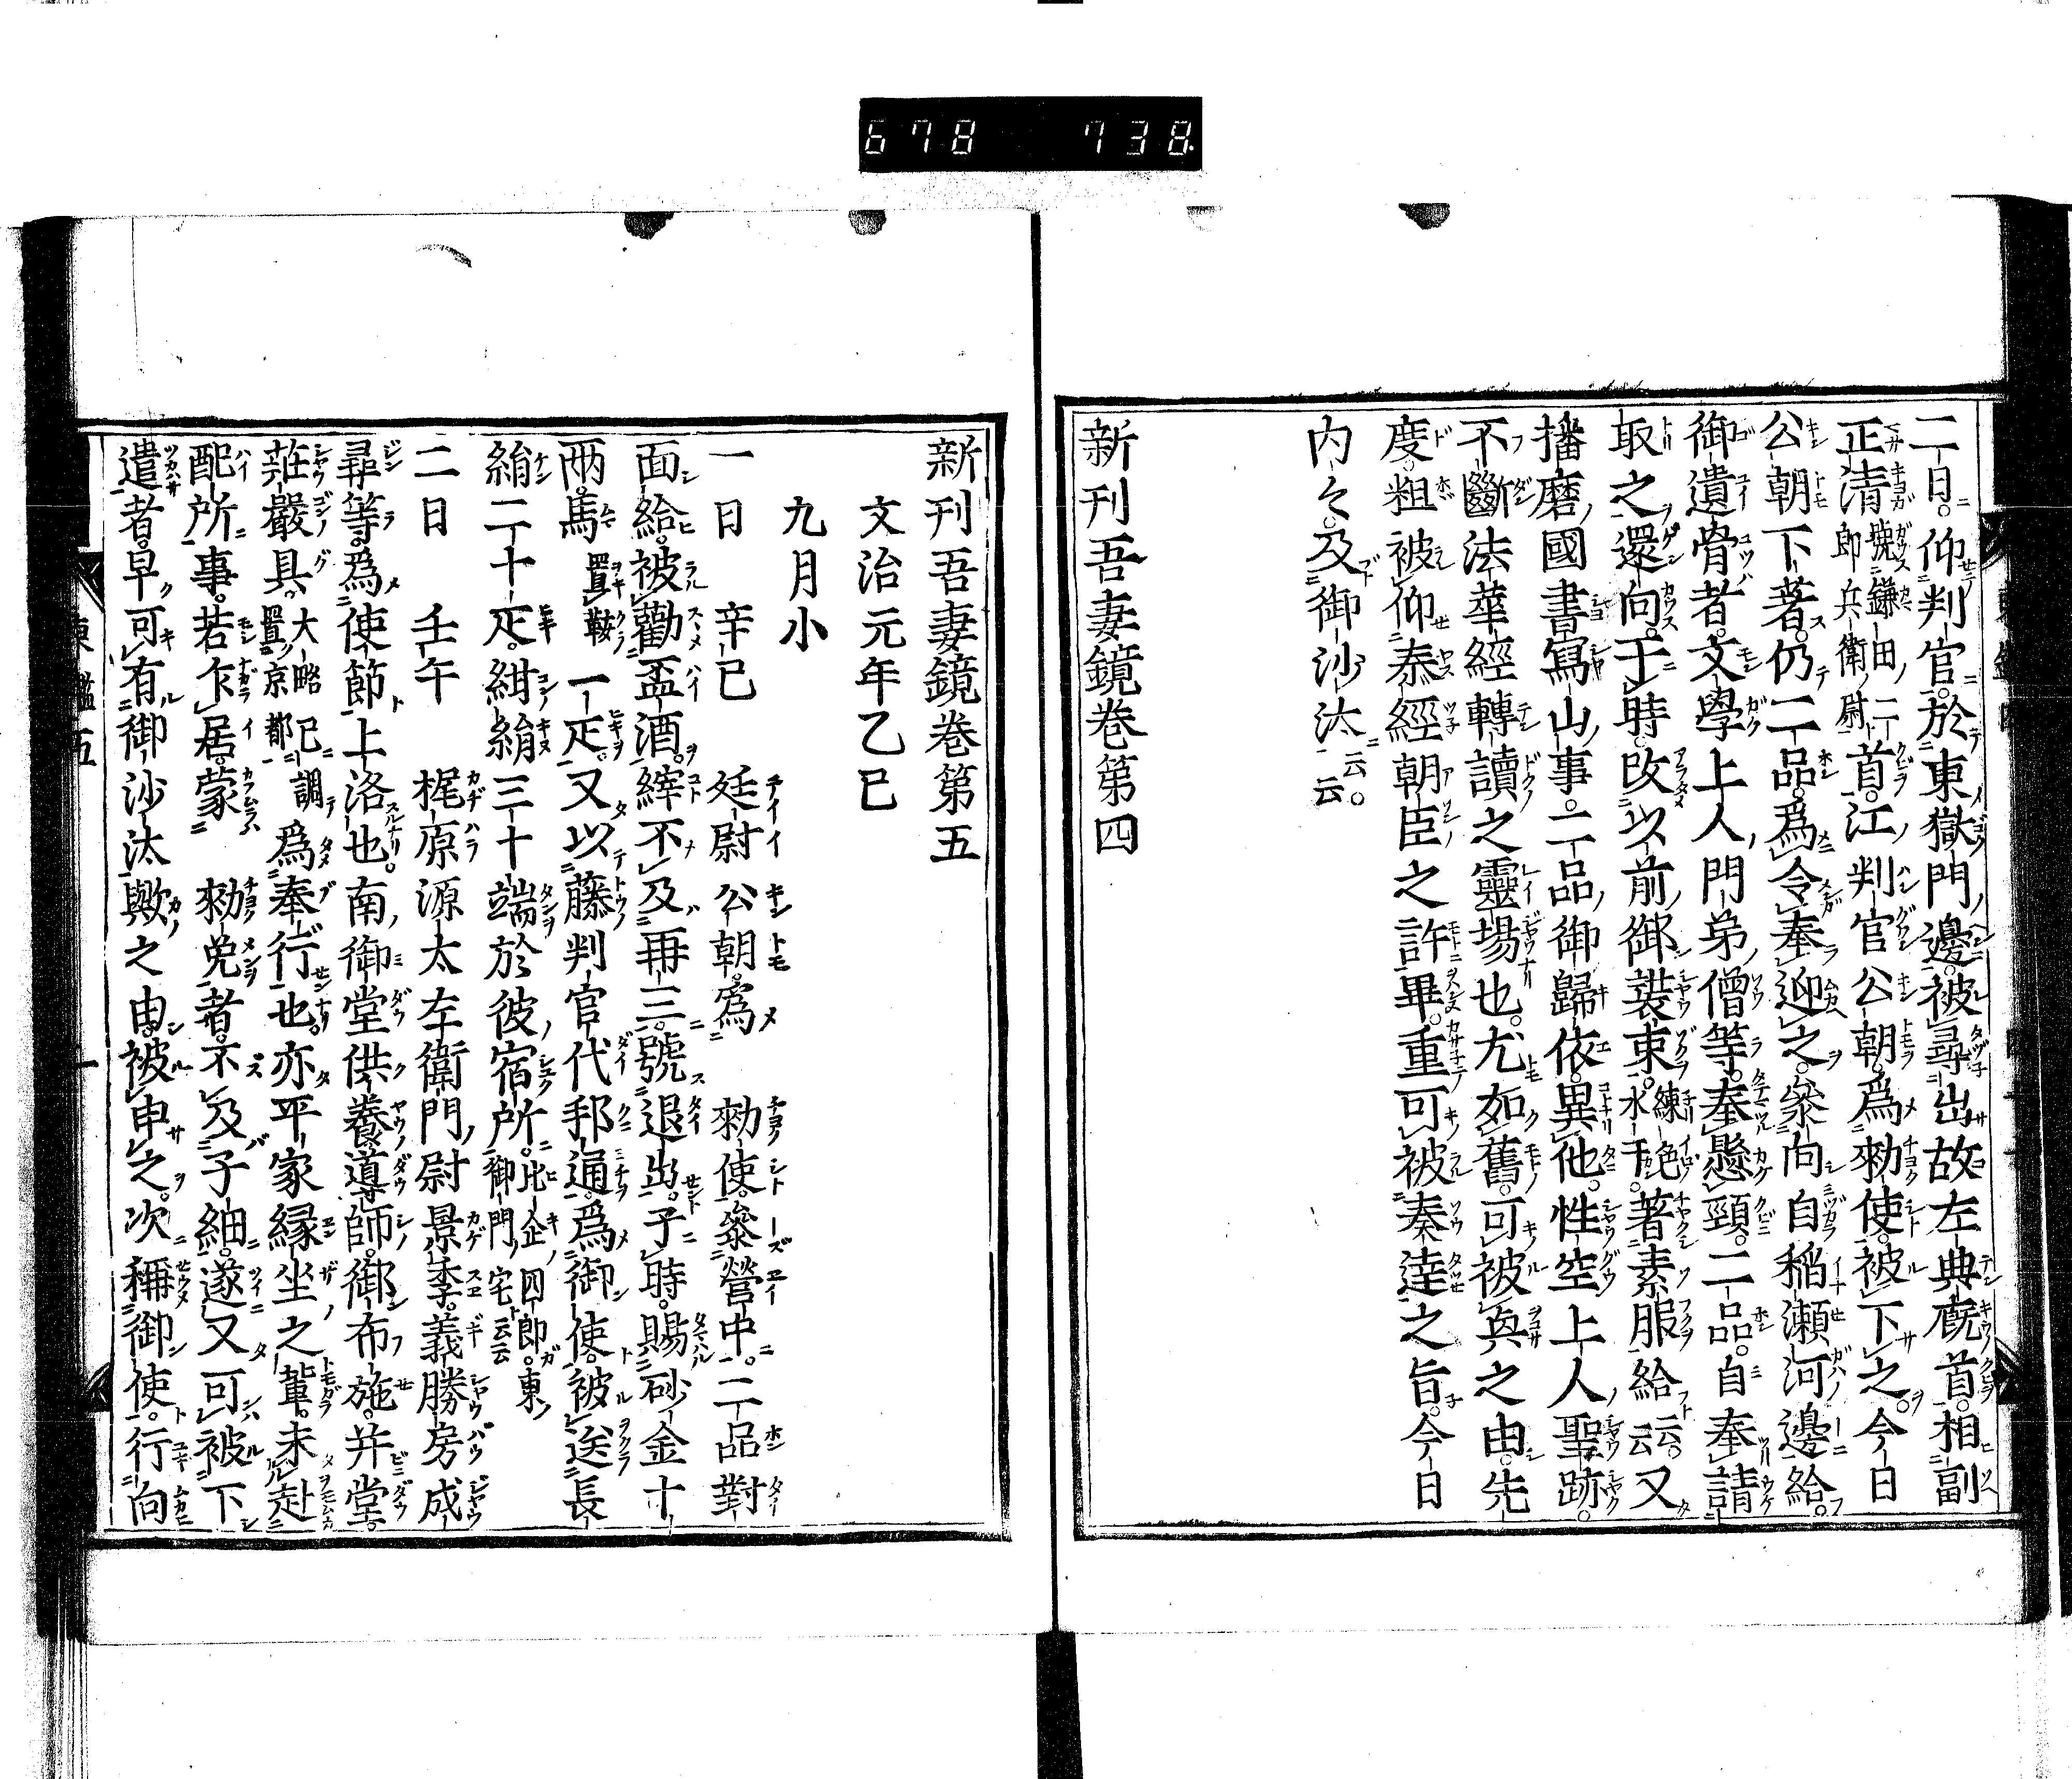 678 738
二日仰判官於東獄門邊被尋出故左典廐首相副
正清號鎌田二郎兵衛尉首江判官公朝爲勅使被下之今日
公朝下著仍二品爲令奉迎之參向自稲瀬河邊給
御遺骨者文學上人門弟僧等奉懸頸二品自奉請
取之還向于時改以前御裝束練色水干著素服給云云又
播磨國書寫山事二品御歸依異他性空上人聖跡
不斷法華經轉讀之靈場也尤如舊可被與之由先
度粗被仰泰經朝臣之許畢重可被奏達之旨今日
内々及御沙汰云云
新刊吾妻鏡卷第四
新刊吾妻鏡卷第五
文治元年乙巳
九月小
一日辛巳廷尉公朝爲勅使參營中二品對
面給被勸盃酒縡不及再三號退出于時賜砂金十
兩馬置鞍一疋又以藤判官代邦通爲御使被送長
絹二十疋紺絹三十端於彼宿所比企四郎東御門宅云云
二日壬午梶原源太左衛門尉景季義勝房成
尋等爲使節上洛也南御堂供養導師御布施并堂
莊嚴具大略已調置京都爲奉行也亦平家縁坐之輩未赴
配所事若乍居蒙勅免者不及子細遂又可被下
遣者早可有御沙汰歟之由被申之次稱御使行向
東鑑五
一